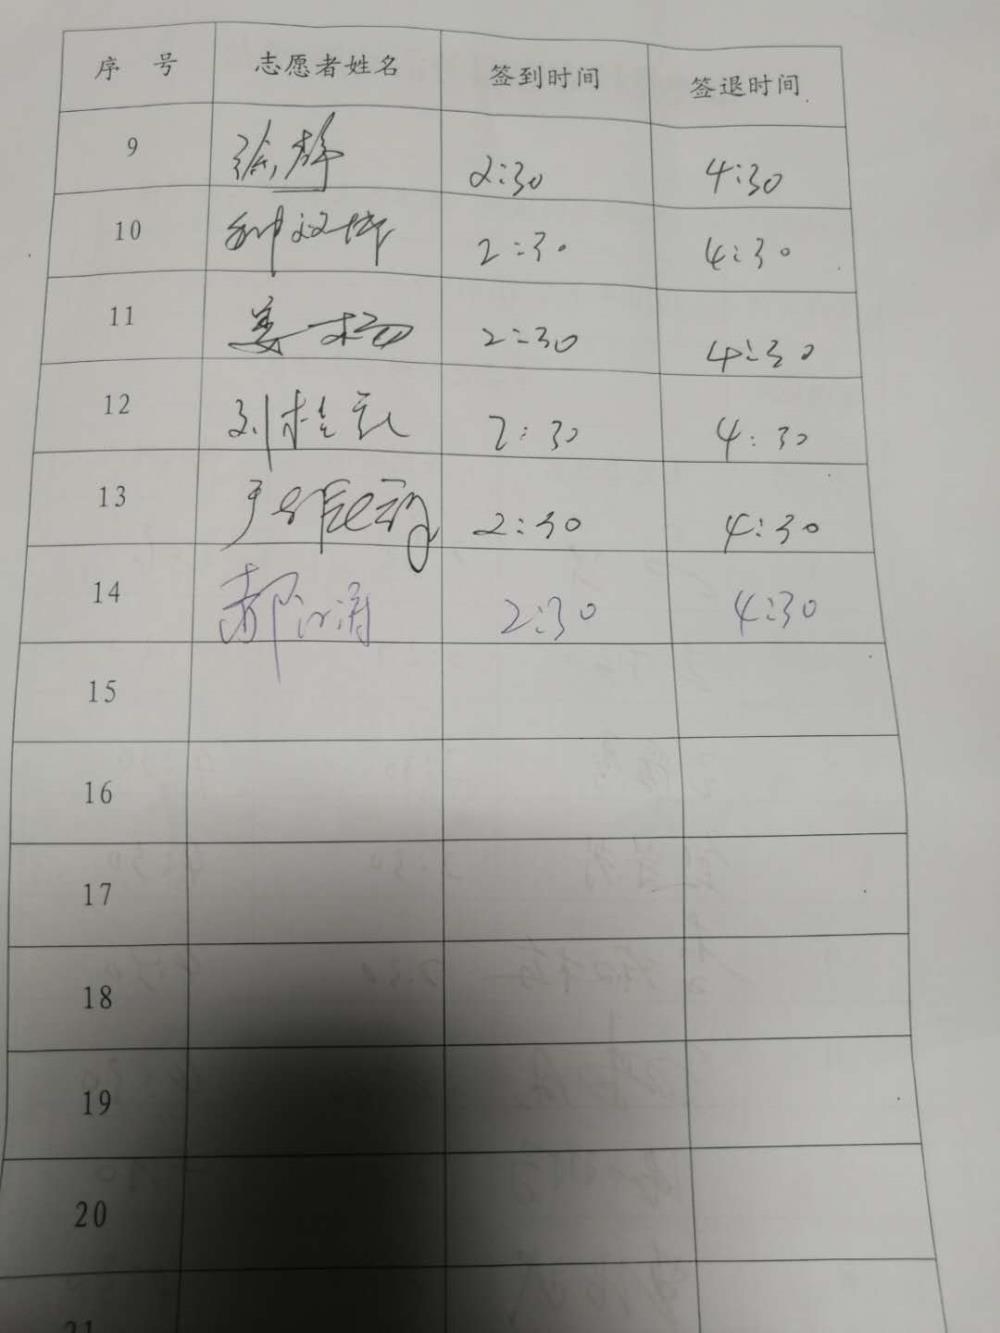 序 号 志愿者姓名 签到时间 签退时间
9 徐静 2:30 4:30
10 2:30 4:30
11 姜杨 2:30 4:30
12 刘桂 2:30 4:30
13 2:30 4:30
14 郝 2:30 4:30
15
16
17
18
19
20
21